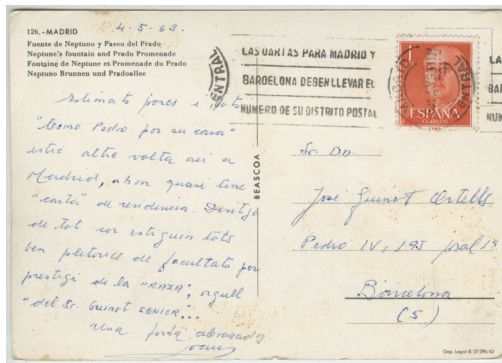 126.-MADRID
4-5-63.
Fuente de Neptuno y Paseo del Prado
Neptune's fountain and Prado Promenade
Fontaine de Neptune et Promenade du Prado
Neptuno Brunnen und Pradoallee
Estimats pares i tots
"Como Pedro por su casa"
estic altre volta aci a
Madrid, a on quasi tinc
"carta" de residencia. Desitjo
de tot cor estiguen tots
ben pletorics de facultats per
prestigi de la "RAZA", orgull
"del Sr. Guinot SENIOR"...
Una forta abraçada
BEASCOA
CENTRAL
LAS CARTAS PARA MADRID Y
BARCELONA DEBEN LLEVAR EL
NUMERO DE SU DISTRITO POSTAL
ESPAÑA
CORREOS
LA
BAR
NUM
Sr. Dn.
José Guinot Ortells
Pedro IV, 195
Barcelona
(5)
Dep. Legal B. 27.096-62